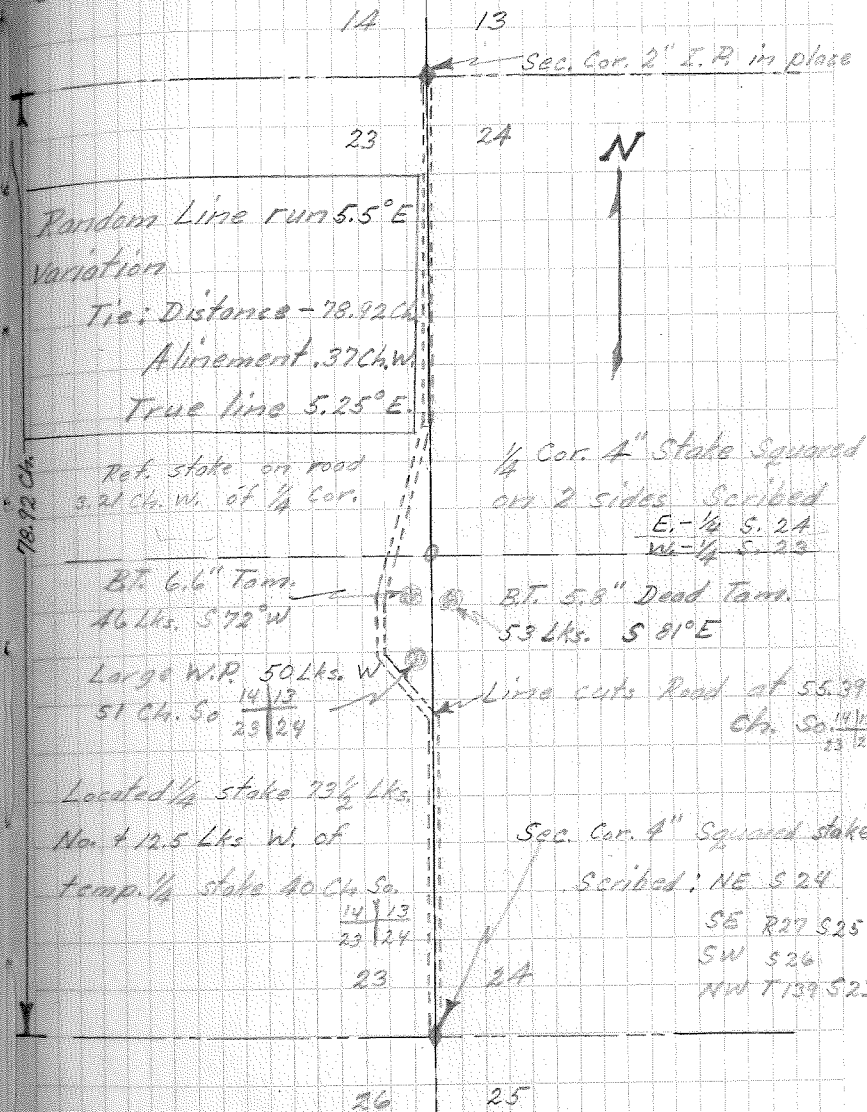 14 13
Sec. Cor. 2" I.P. in place
23 24
N
Random Line run 5.5° E
Variation
Tie: Distance - 78.92 Ch.
Alinement .37 Ch. W.
True line 5.25° E.
78.92 Ch.
Ref. stake on road
3.21 Ch. W. of 1/4 Cor.
1/4 Cor. 4" Stake Squared
on 2 sides Scribed
E. - 1/4 S. 24
W. - 1/4 S. 23
B.T. 6.6" Tam.
46 Lks. S 72° W
B.T. 5.8" Dead Tam.
53 Lks. S 81° E
Large W.P. 50 Lks. W
51 Ch. So 14 13
23 24
Line cuts Road at 55.39
Ch. So. 14 13
23 2
Located 1/4 stake 73 1/2 Lks.
No. + 12.5 Lks W. of
temp. 1/4 stake 40 Ch So.
14 13
23 24
Sec. Cor. 4" Squared stake
Scribed: NE S 24
SE R27 S25
SW S26
NW T139 S23
23 24
26 25